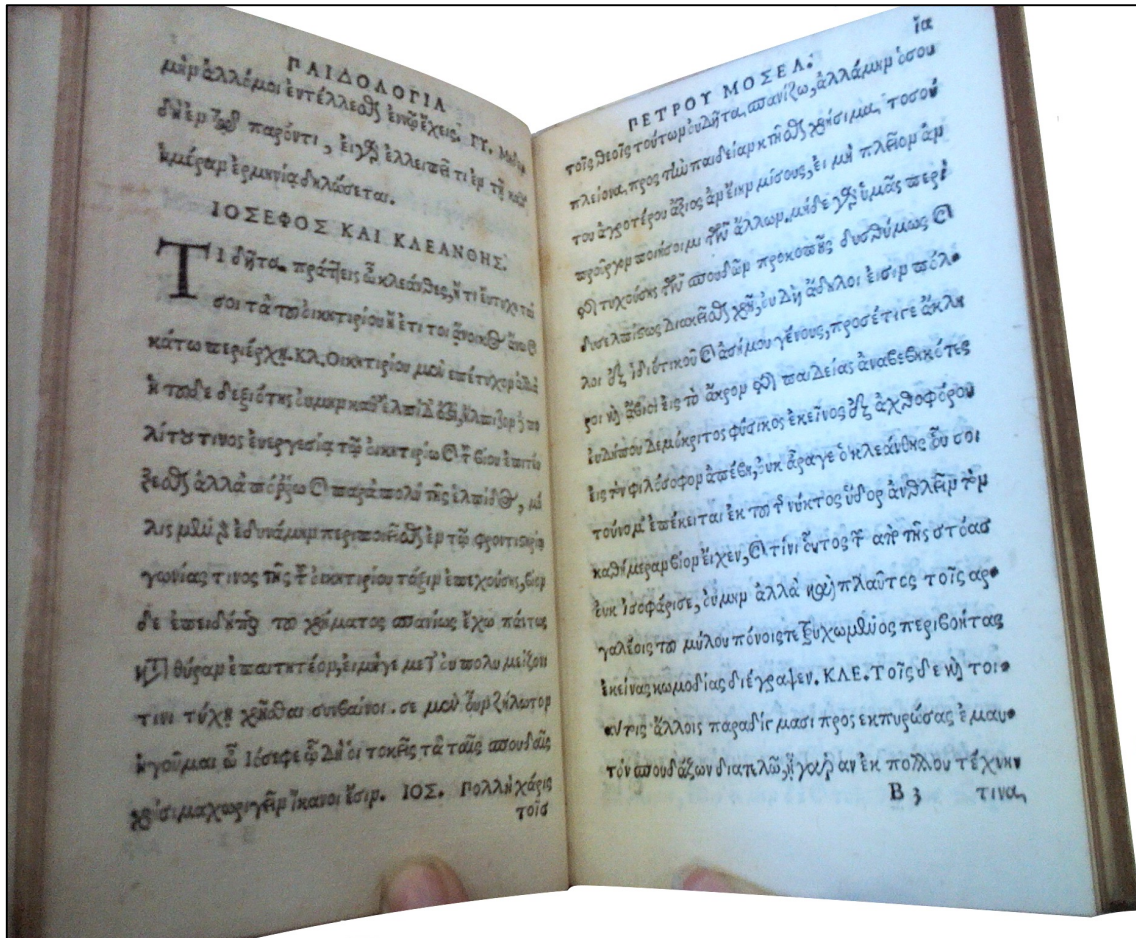 ΠΑΙΔΟΛΟΓΙΑ
μὴν ἀλλά μοι ἐντέλλεσθαι ἐν ᾧ ἔχεις. ΓΥ.
δὲν ἐν τῷ παρόντι, εἰ γὰρ ἐλλείπῃ τι ἐν τῇ καθ᾽
ἡμέραν ἑρμηνίᾳ δηλώσεται.
ΙΟΣΕΦΟΣ ΚΑΙ ΚΛΕΑΝΘΗΣ.
ΤΙ δῆτα πράττεις ὦ κλεάνθες, ἤ τι ἐυτυχι
σοι τὰ τοῦ οἰκητιρίου ἢ ἔτι τοι ἄνοικος ἄνω καὶ
κάτω περιέρχῃ. ΚΛ. Οἰκητιρίου μὲν ἐπέτυχον
ἢ τοῦδε δεξιότης ὀυ μὴν κατ᾽ ἐλπίδα
λίτου τινος ἐνεργεσίᾳ τῷ ὀικητιρίῳ καὶ τοῦ βίου ἐπιτεύ
ξεσθαι ἀλλὰ πόῤῥω καὶ παρὰ πολὺ τῆς ἐλπίδος,
λις μὲν ἐδυνάμην περιποιεῖσθαι ἐν τῷ φροντιστηρίῳ
γωνίας τινος τῆς τοῦ ὀικητιρίου τάξιν ἐπεχούσης, βίον
δε ἐπειδήπερ τοῦ χρήματος σπανίως ἔχω πάντως
κατὰ θύραν ἐπαιτητέον, εἰ μήγε μετ᾽ ὀυ πολυ μείζονι
τινι τύχῃ χρῆσθαι συνβαίνοι. σε μὲν ὀυν ζήλωτον
ἡγοῦμαι ὦ Ιόσεφε ᾧ δὴ ὁι τοκεῖς τὰ ταῖς σπουδαῖς
χρίσιμα χωριγεῖν ἵκανοι ἔσιν. ΙΟΣ. Πολλὴ χάρις
τοῖσ
ΠΕΤΡΟΥ ΜΟΣΕΛ.
ια
τοῖς θεοῖς τούτων ὀυ δῆτα σπανίζω, ἀλλὰ μὴν ὅσου
πλείονα προς τὴν παιδείαν κτῆσθαι χρήσιμα, τοσού
του ἀγροτέρου ἄξιος ἂν εἴην μίσους, ἐι μὴ πλεῖον ἂν
προῖργον ποιήσοιμι τῶν ἄλλων. μηδε γὰρ ὑμᾶς περὶ
τῆς τυχούσης τῶν σπουδῶν προκοπῆς δυσθύμως καὶ
δυσελπίθως διακεῖσθαι χρή, ὀυ δὴ ἄδηλοι εἰσιν πόλ-
λοι ἐξ ἰδιότικοῦ καὶ ἀσήμου γένους, προσέτιγε ἄκλη
ροι καὶ ἄβιοι ἐις τὸ ἄκρον τῆς παιδείας ἀναβεβηκότες
ἐυδήπου Δεμόκριτος φύσικος ἐκεῖνος ἐξ ἀχθοφόρου
ἐις τὴν φιλόσοφον ἀπέβη, ὀυκ ἄραγε ὁ κλεάνθης ὃυ σοι
τοὔνομ᾽ ἐπέκειται ἐκ τοῦ τὴν νύκτος ὕδορ ἀνθλεῖν τὸν
καθἡμέραν βίον εἴχεν, καὶ τίνι ὁυτος τῶν ἀπὸ τῆς στόασ
ὀυκ ἰσοφάρισε, ὀυ μὴν ἀλλὰ καὶ πλαῦτος τοῖς αρ-
γαλέοις τοῦ μύλου πόνοις περιβοήτας
ἐκείνας κωμοδίας διέγραψεν. ΚΛΕ. Τοῖς δε καὶ τοι-
αυτις ἄλλοις παραδίγμασι προς εκπυρώσας ἐμαυ-
τόν σπουδάζων διατελῶ, ἢ γαρ αν ἐκ πολλου τέχνην
Β 3 τινα,